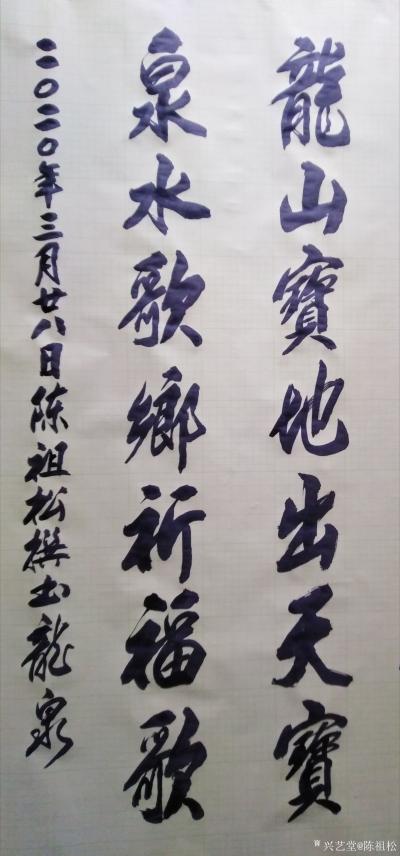 龍山寶地出天寶
泉水歌鄉祈福歌
二〇二〇年三月廿八日陈祖松撰书龍泉
兴艺堂@陈祖松